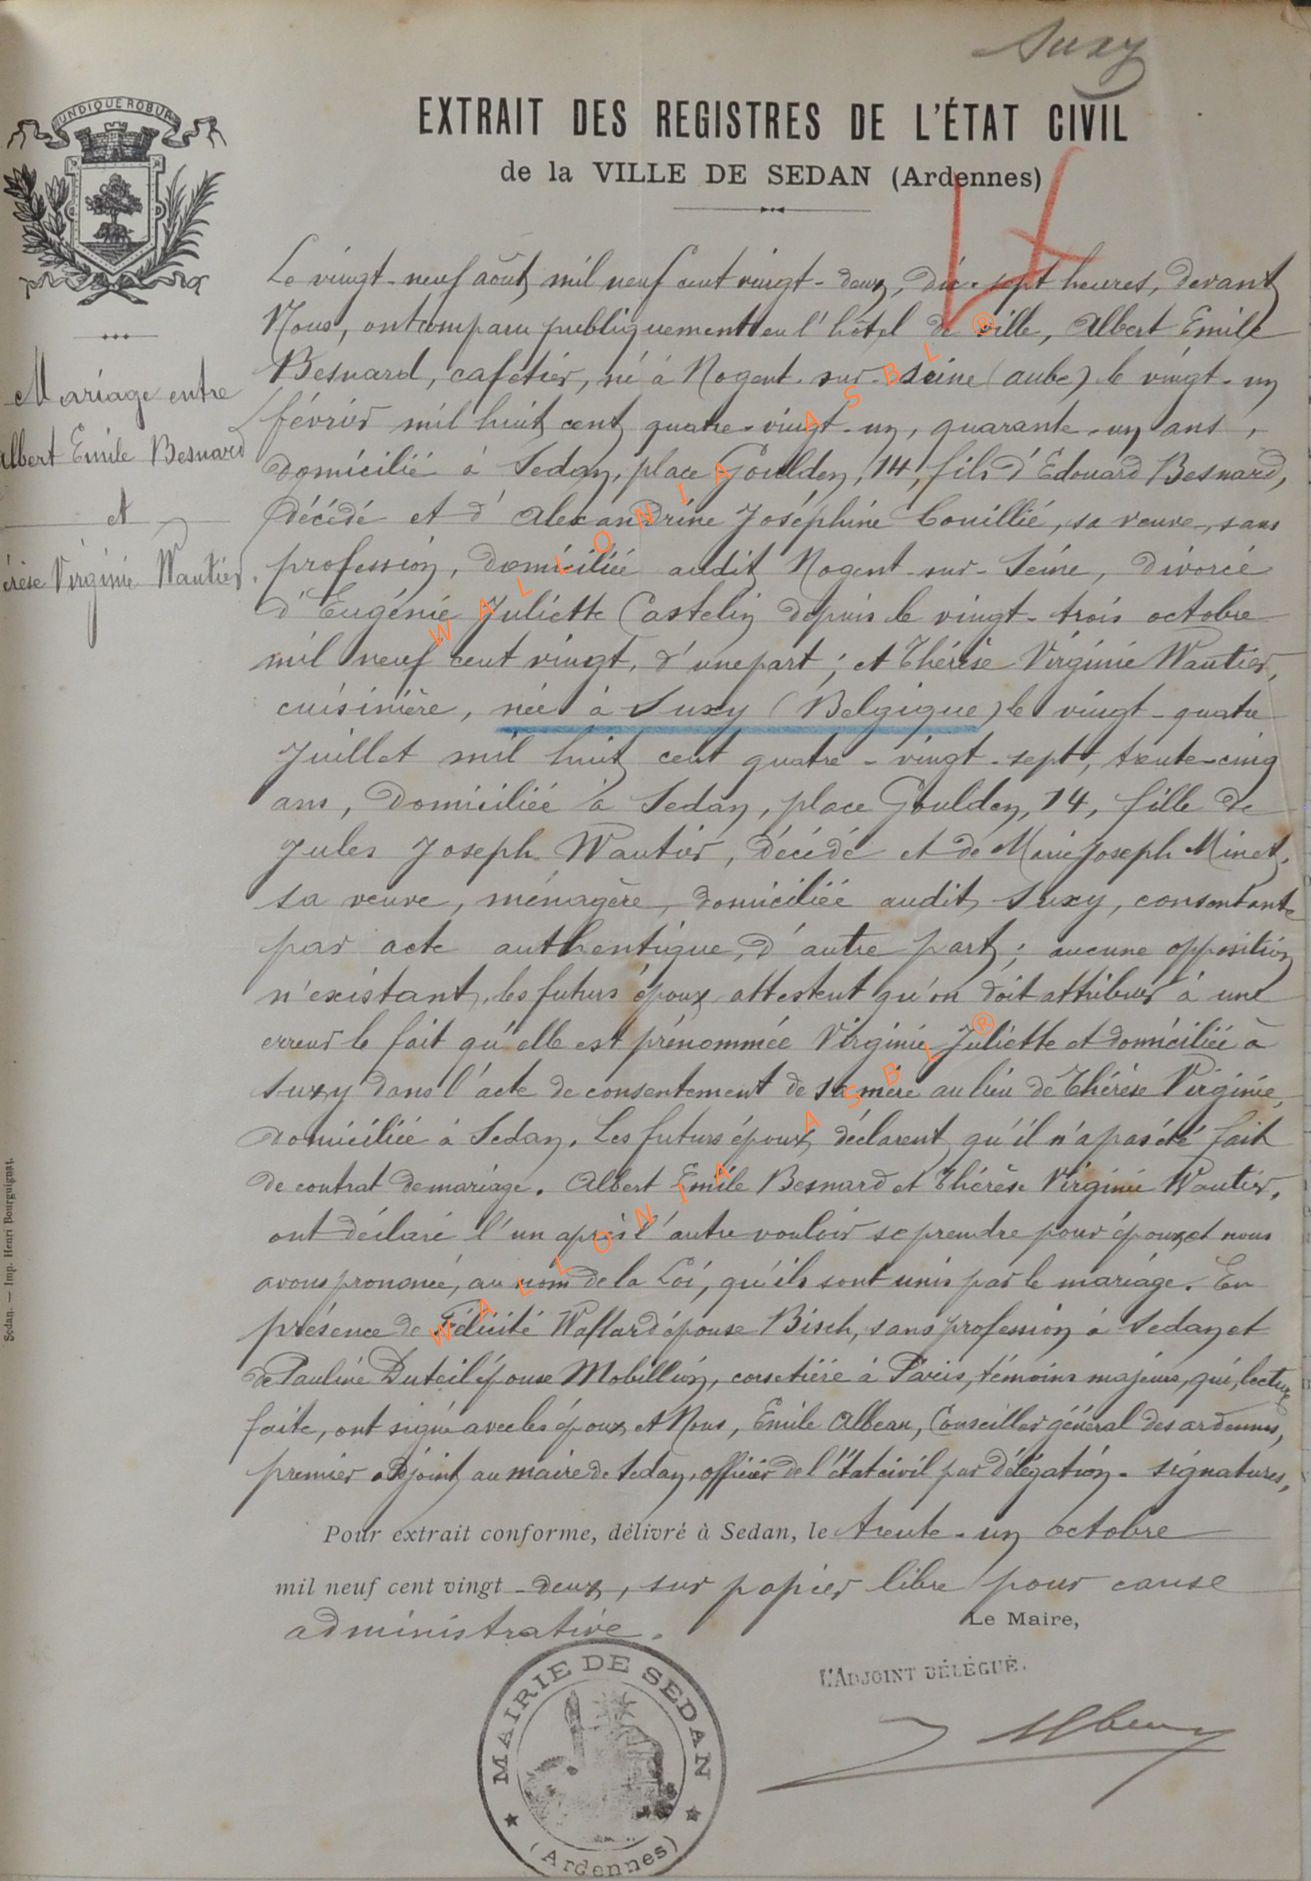 Suxy
UNDIQUE ROBUR
EXTRAIT DES REGISTRES DE L'ÉTAT CIVIL
de la VILLE DE SEDAN (Ardennes)
Mariage entre
Albert Emile Besnard
et
érèse Virginie Wautier.
Le vingt-neuf août mil neuf cent vingt-deux, dix-sept heures, devant
Nous, ont comparu publiquement en l'hôtel de ville, Albert Emile
Besnard, cafetier, né à Nogent-sur-Seine (aube) le vingt-un
février mil huit cent quatre-vingt-un, quarante-un ans,
domicilié à Sedan, place Goulden, 14, fils d'Edouard Besnard,
décédé et d'Alexandrine Joséphine Couillié, sa veuve, sans
profession, domiciliée audit Nogent-sur-Seine, divorcé
d'Eugénie Juliette Castelin depuis le vingt-trois octobre
mil neuf cent vingt, d'une part; et Thérèse Virginie Wautier,
cuisinière, née à Suxy (Belgique) le vingt-quatre
Juillet mil huit cent quatre-vingt-sept, trente-cinq
ans, domiciliée à Sedan, place Goulden, 14, fille de
Jules Joseph Wautier, décédé et de Marie Joseph Minet,
sa veuve, ménagère, domiciliée audit Suxy, consentante
par acte authentique, d'autre part; aucune opposition
n'existant, les futurs époux attestent qu'on doit attribuer à une
erreur le fait qu'elle est prénommée Virginie Juliette et domiciliée à
Suxy dans l'acte de consentement de sa mère au lieu de Thérèse Virginie,
domiciliée à Sedan. Les futurs époux déclarent qu'il n'a pas été fait
de contrat de mariage. Albert Emile Besnard et Thérèse Virginie Wautier,
ont déclaré l'un après l'autre vouloir se prendre pour époux et nous
avons prononcé, au nom de la Loi, qu'ils sont unis par le mariage. En
présence de Félicité Waflard épouse Bisch, sans profession à Sedan et
de Pauline Duteil épouse Mobillion, corsetière à Paris, témoins majeurs, qui, lecture
faite, ont signé avec les époux et Nous, Emile Albeau, Conseiller général des ardennes,
premier adjoint au maire de Sedan, officier de l'état civil par délégation. signatures,
Pour extrait conforme, délivré à Sedan, le trente-un octobre
mil neuf cent vingt-deux, sur papier libre pour cause
administrative.
Le Maire,
L'ADJOINT DÉLÉGUÉ.
MAIRIE DE SEDAN
(Ardennes)
Sedan. — Imp. Henri Bourguignat.
WALLONIA ASBL®
WALLONIA ASBL®